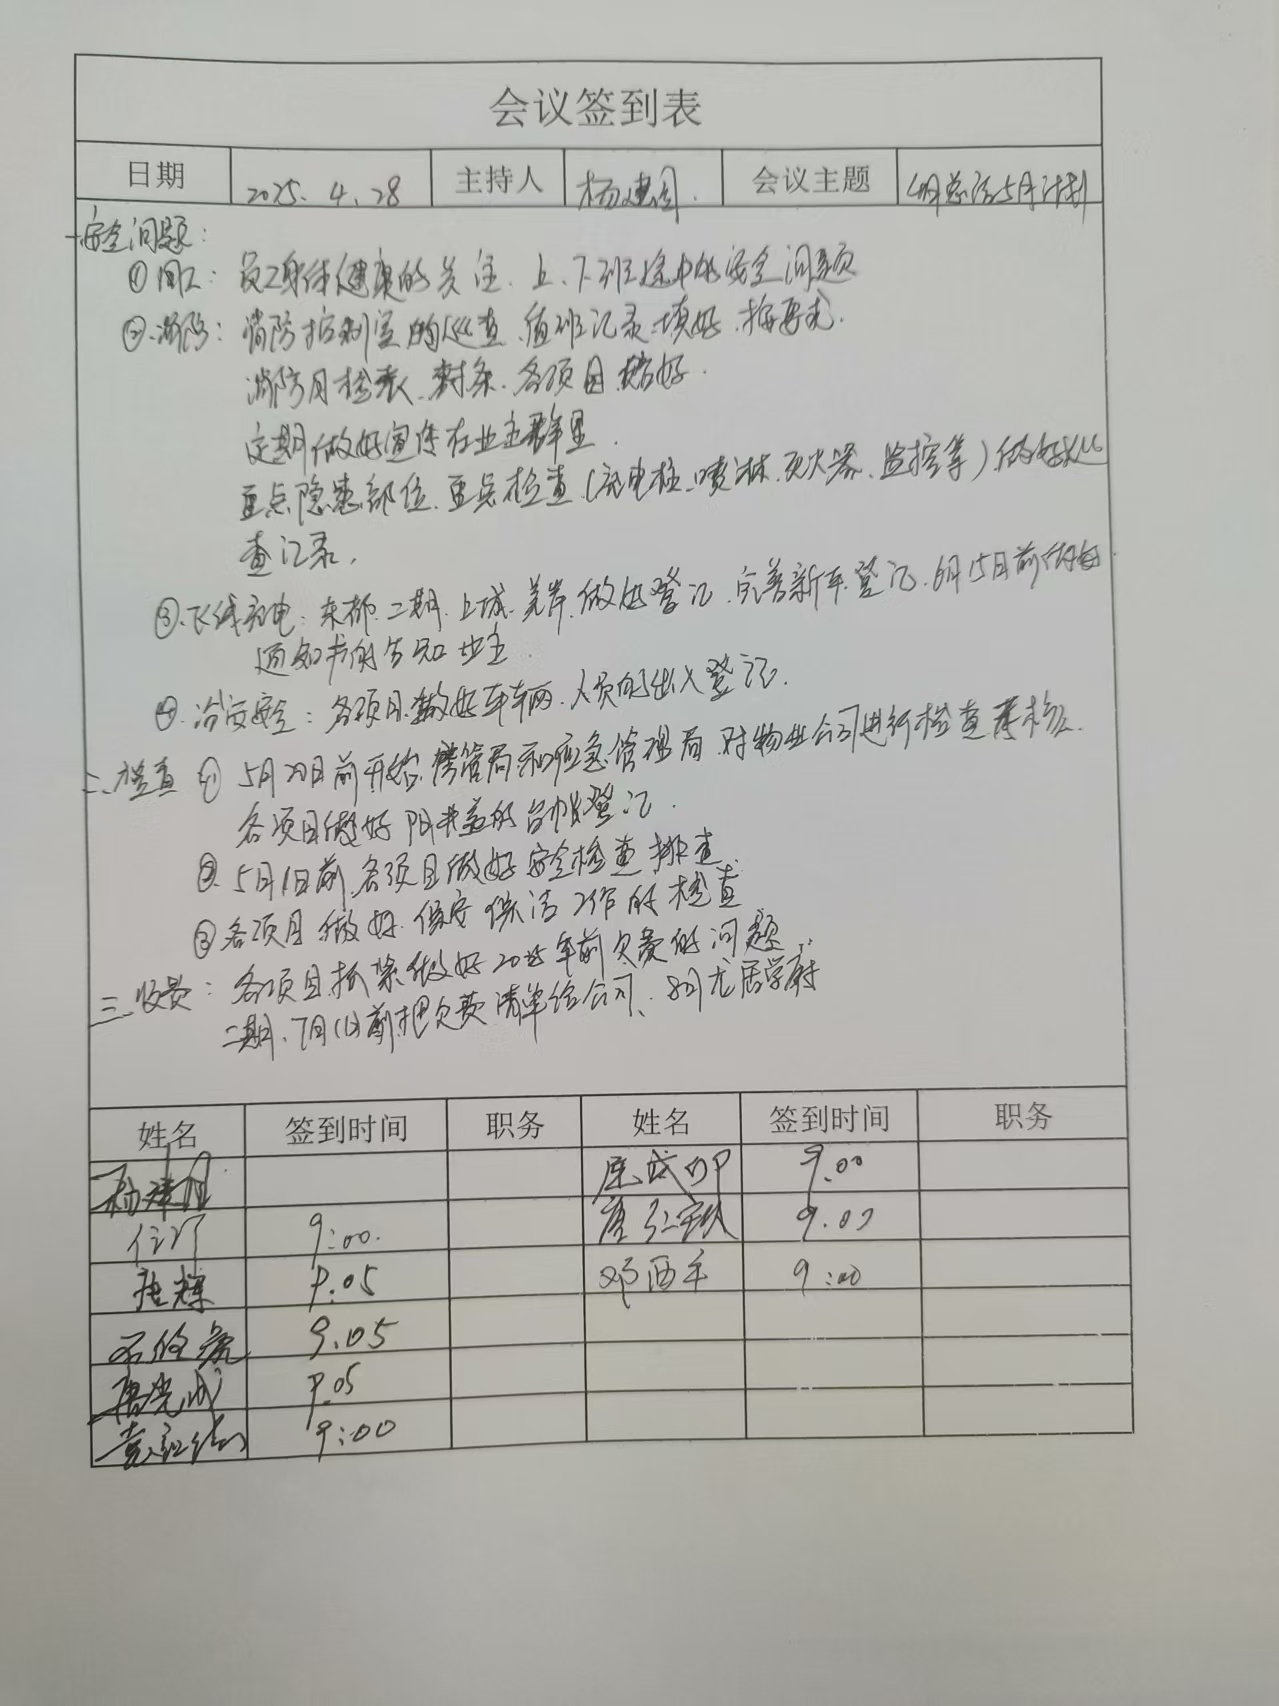 会议签到表
日期 2025.4.28 主持人 杨建国. 会议主题 4月总结5月计划
一安全问题:
①员工: 员工身体健康的关注、上、下班途中的安全问题
②.消防: 消防控制室的巡查、值班记录填好、按要求.
消防月检表、封条、各项目 好.
定期做好宣传在业主群里.
重点隐患部位、重点检查(充电桩、喷淋、灭火器、监控等)做好巡
查记录.
③.飞线充电: 东都、二期、上城、 做好登记、完善新车登记、6月15日前
通知书的告知业主.
④.治安安全: 各项目做好车辆、人员的出入登记.
二、检查 ① 5月20日前开始, 房管局和应急管理局、对物业公司进行检查考核.
各项目做好阴井盖的台帐登记.
②. 5月1日前,各项目做好安全检查排查.
③各项目做好、保安保洁工作的检查
三、收费: 各项目抓紧做好2025年前欠费的问题
二期、7月1日前把欠费清单给公司、 龙居学府
姓名 签到时间 职务 姓名 签到时间 职务
9.00
9:00. 9.00
9.05 邓西平 9:00
9.05
9.05
9:00